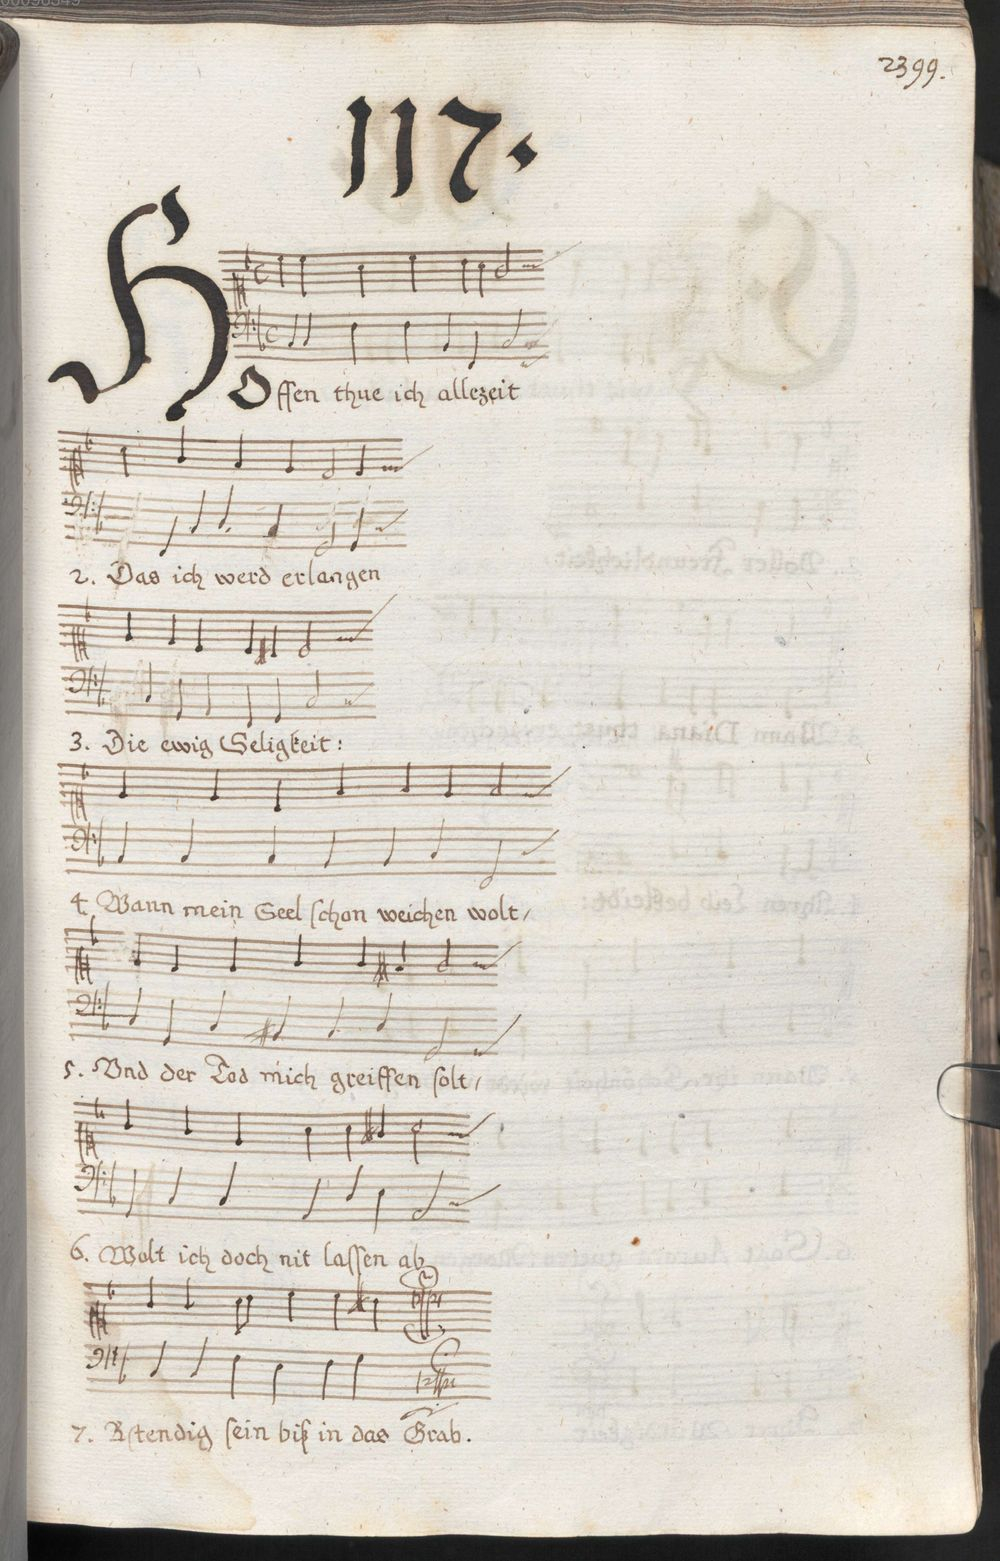 2399.
117.
HOffen thue ich allezeit
2. Das ich werd erlangen
3. Die ewig Seligkeit:
4. Wann mein Seel schon weichen wolt,
5. Vnd der Tod mich greiffen solt,
6. Wolt ich doch nit lassen ab
7. Bstendig sein biß in das Grab.